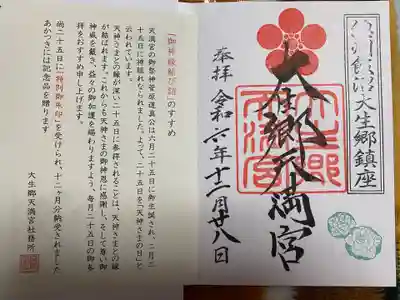 大生郷鎮座
大生郷天満宮
奉拝 令和六年十二月廿八日
「御神縁結び詣」のすすめ
天満宮の御祭神菅原道真公は六月二十五日に御生誕され、二月二
十五日に神様になられました。よって、二十五日を「天神さまの日」と
云われています。
天神さまとの縁が深い二十五日に参拝されることは、天神さまとの縁
が結ばれます。これからも天神さまの御神恩に感謝し、そして尊い御
神威を戴き、益々の御加護を賜わりますよう、毎月二十五日の御参
拝をおすすめ申し上げます。
尚二十五日に「特別御朱印」を受けられ、十二ヶ月分納受されました
あかつきには記念品を贈ります
大生郷天満宮社務所